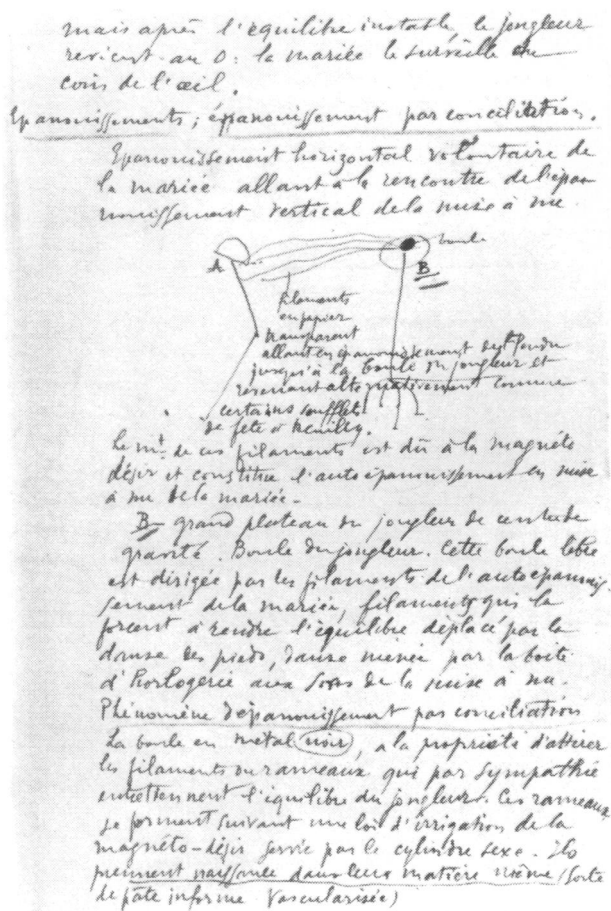 mais après l'équilibre instable, le jongleur
revient au O: la mariée le surveille du
coin de l'œil.
Epanouissements; épanouissement par conciliation.
Epanouissement horizontal volontaire de
la mariée allant à la rencontre de l'épa
nouissement vertical de la mise à nu.
boule
A
B
filaments
en papier
transparent
allant en épanouissement
jusqu'à la boule du jongleur et
revenant alternativement comme
certains soufflets
de fête à Neuilly.
Le mt. de ces filaments est dû à la magnéto
désir et constitue l'auto épanouissement en mise
à nu de la mariée.-
B- grand plateau du jongleur de centre de
gravité. Boule du jongleur. Cette boule libre
est dirigée par les filaments de l'auto épanouis
sement de la mariée, filaments qui la
forcent à rendre l'équilibre déplacé par la
danse des pieds, danse menée par la boîte
d'horlogerie aux sons de la mise à nu.
Phénomène d'épanouissement par conciliation
La boule en métal noir, a la propriété d'attirer
les filaments ou rameaux qui par sympathie
entretiennent l'équilibre du jongleur. Ces rameaux
se forment suivant une loi d'irrigation de la
magnéto-désir servie par le cylindre sexe. Ils
prennent naissance dans leur matière même (sorte
de pâte informe vascularisée)